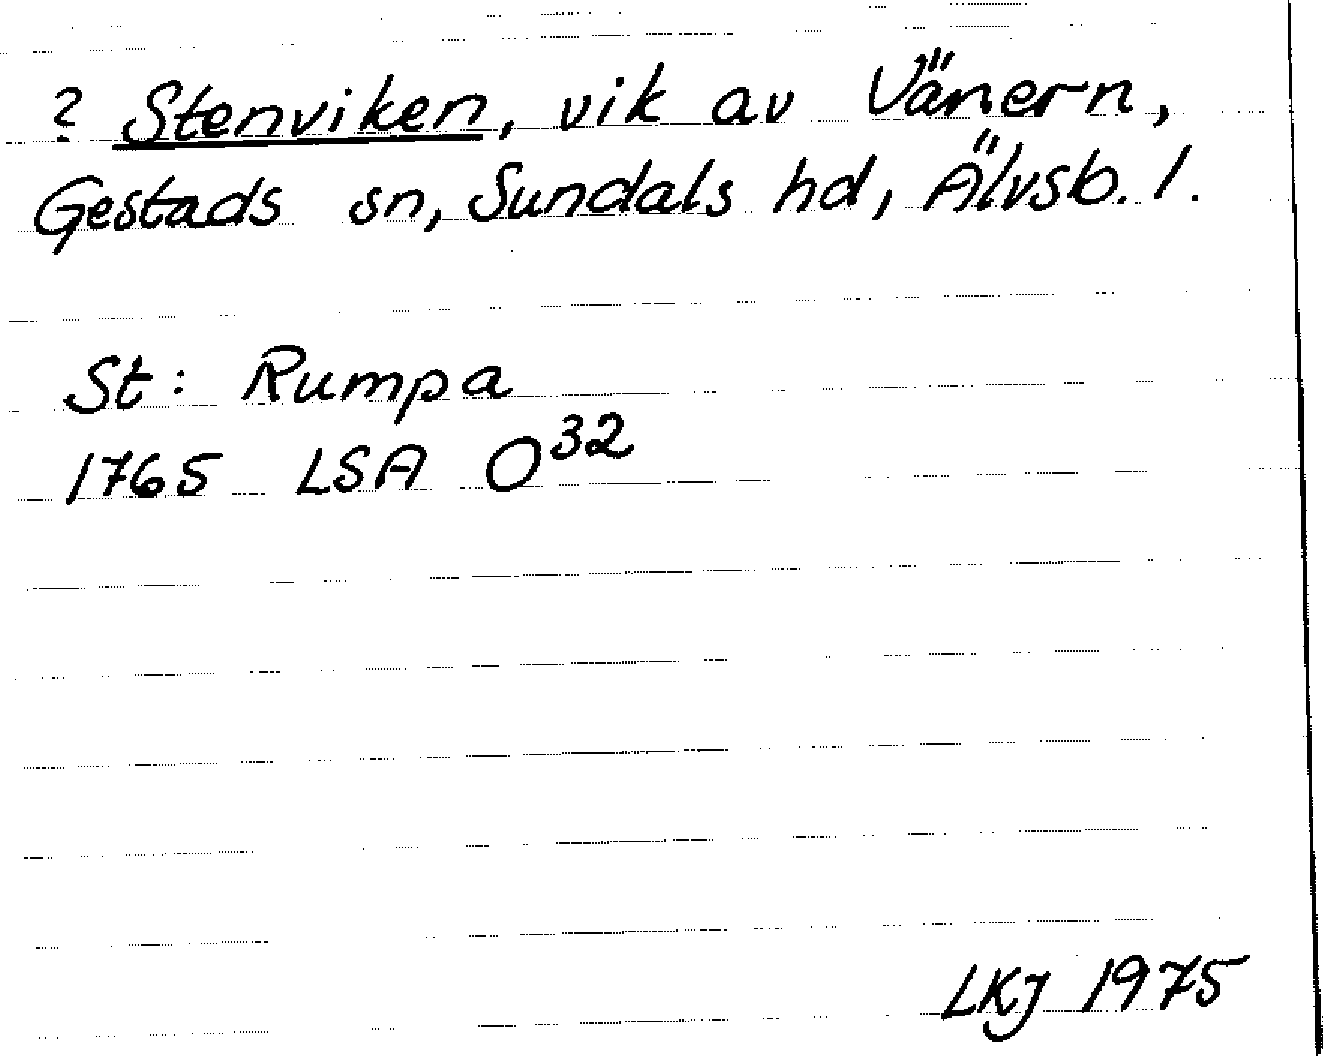 ? Stenviken, vik av Vänern,
Gestads sn, Sundals hd, Älvsb. l.
St: Rumpa
1765 LSA O³²
LKJ 1975